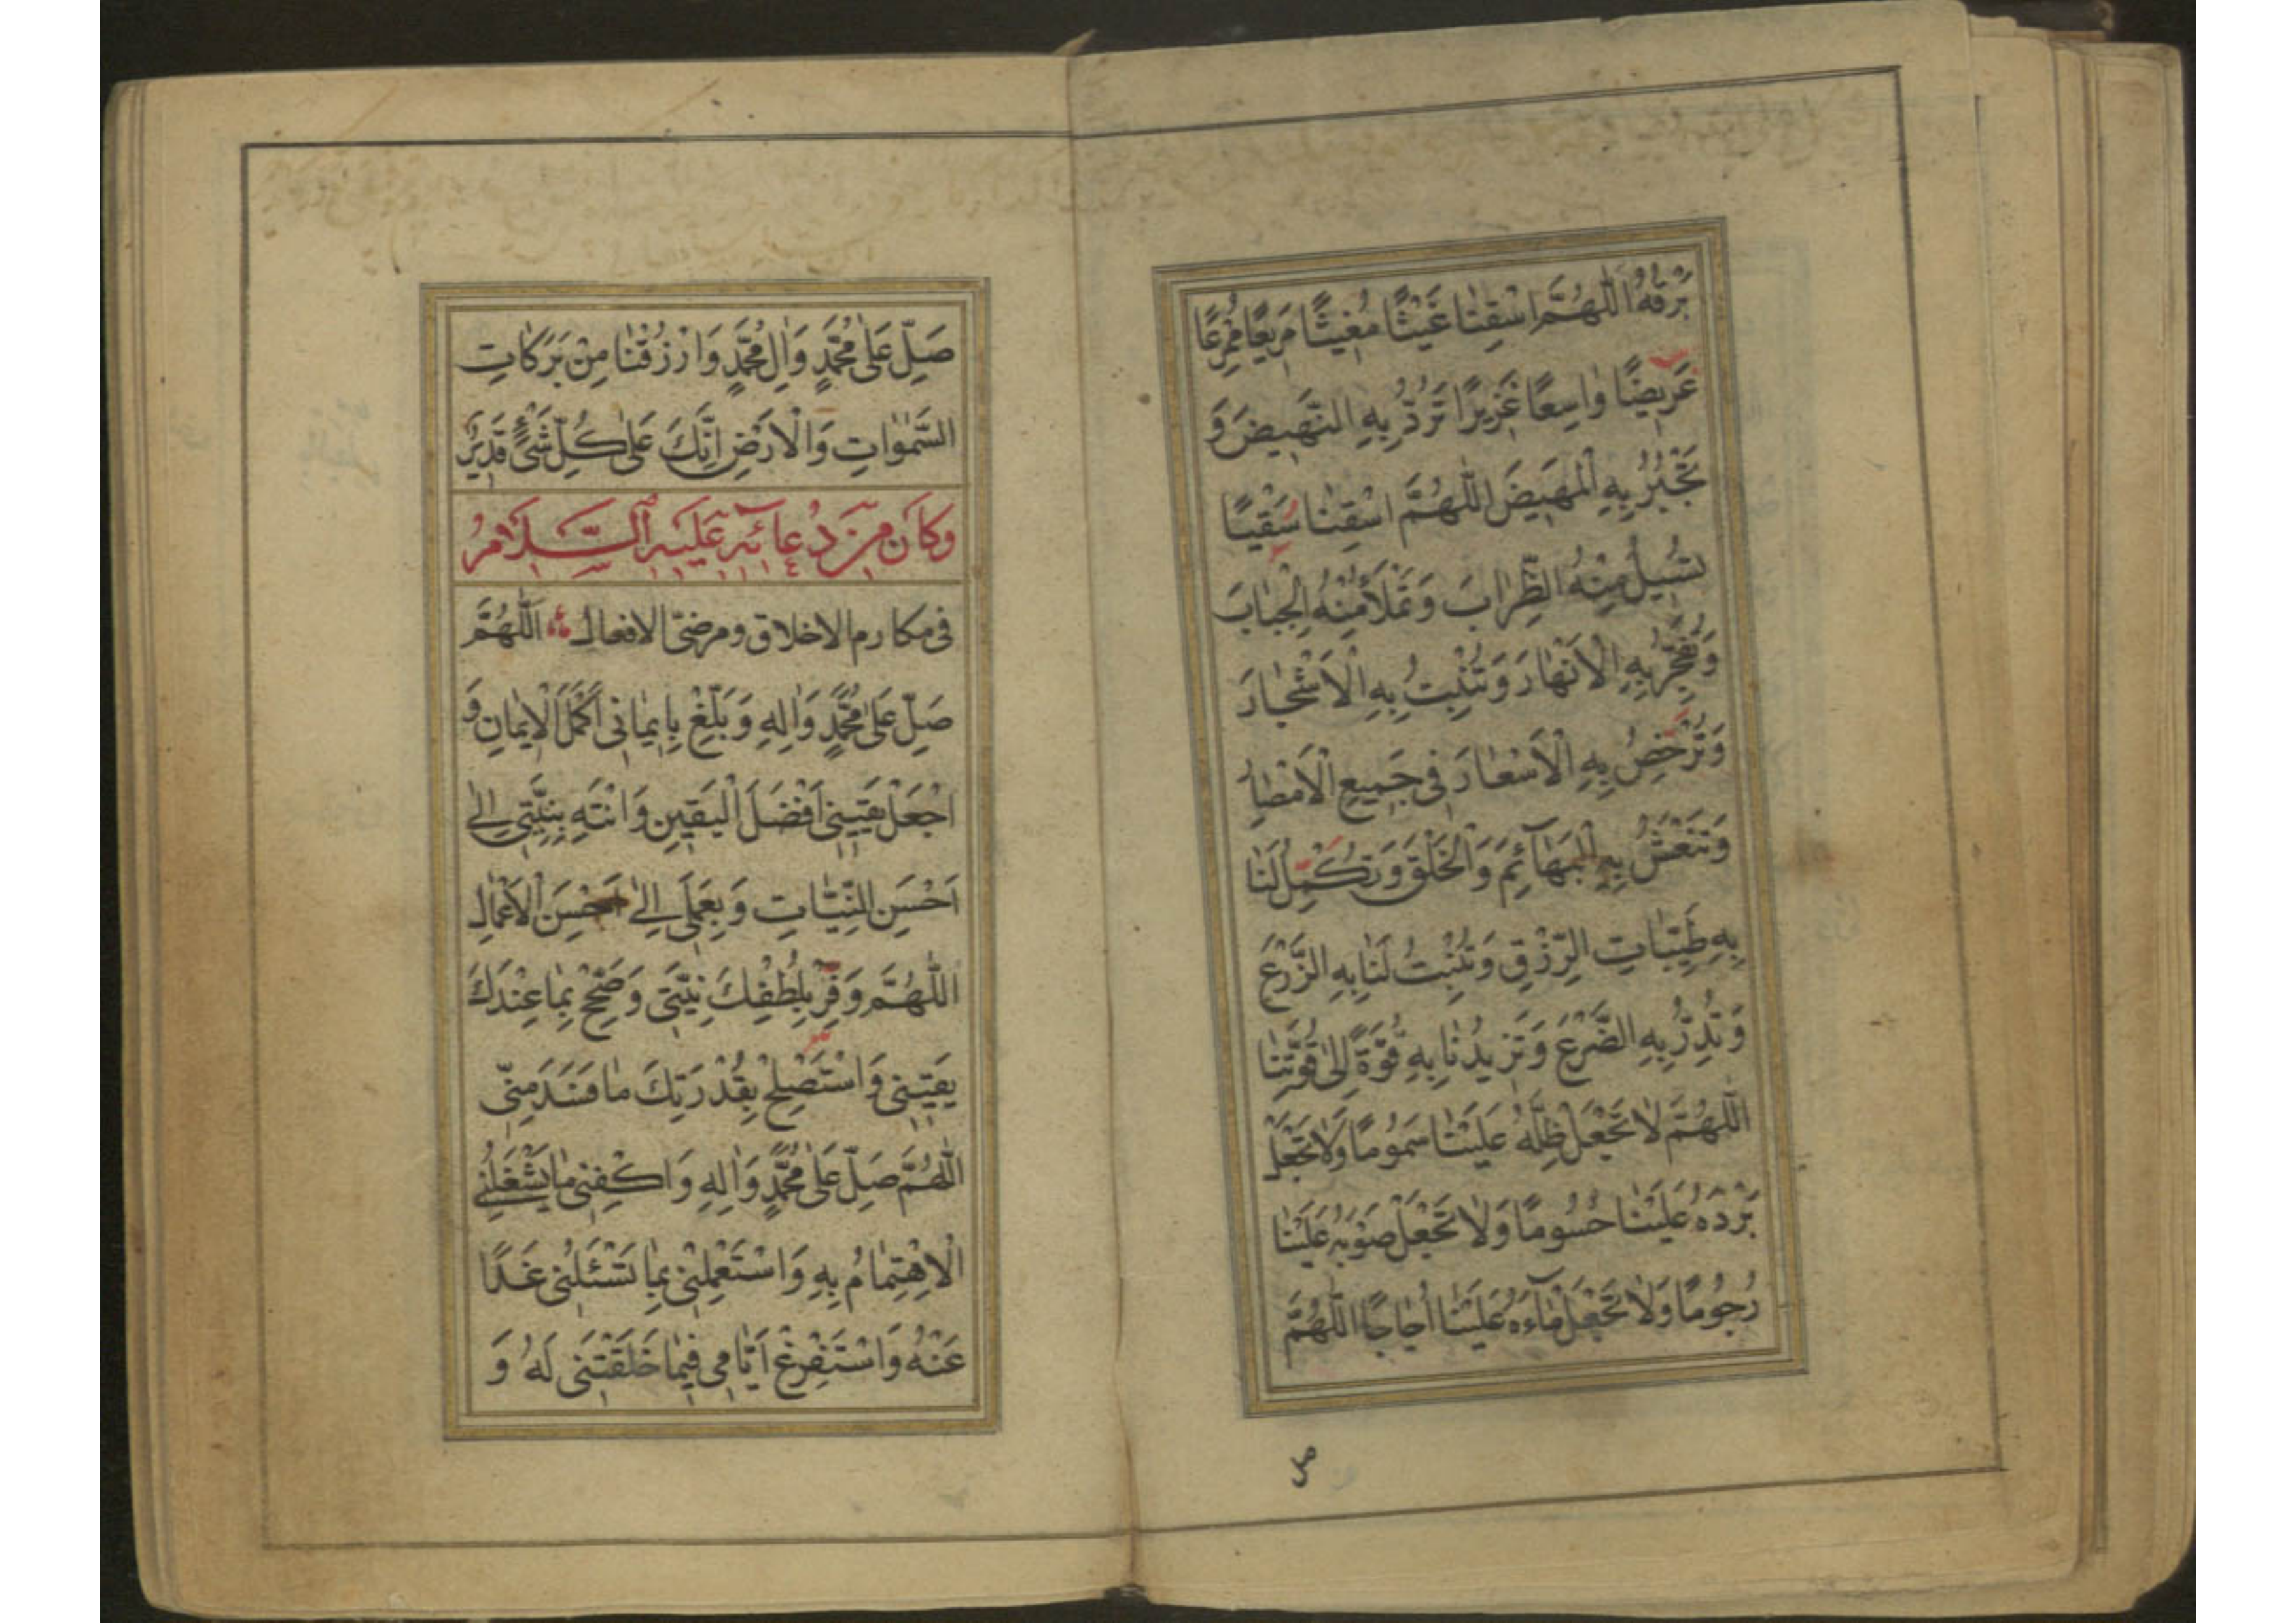 بَرْقُهُ اَللّٰهُمَّ اسْقِنٰا غَيْثًا مُغيثًا مَريعًا مُمْرِعًا
عَريضًا وٰاسِعًا غَزيرًا تَرُدُّ بِهِ النَّهيضَ وَ
تَجْبُرُ بِهِ الْمَهيضَ اَللّٰهُمَّ اسْقِنٰا سَقْيًا
تُسيلُ مِنْهُ الظِّرٰابَ وَتَمْلَأُ مِنْهُ الْجِبٰابَ
وَتُفَجِّرُ بِهِ الْاَنْهٰارَ وَتُنْبِتُ بِهِ الْاَشْجٰارَ
وَتُرْخِصُ بِهِ الْاَسْعٰارَ فى جَميعِ الْاَمْصٰارِ
وَتَنْعَشُ بِهِ الْبَهٰآئِمَ وَالْخَلْقَ وَتُكْمِلُ لَنٰا
بِهِ طَيِّبٰاتِ الرِّزْقِ وَتُنْبِتُ لَنٰا بِهِ الزَّرْعَ
وَتُدِرُّ بِهِ الضَّرْعَ وَتَزيدُنٰا بِهِ قُوَّةً اِلىٰ قُوَّتِنٰا
اَللّٰهُمَّ لٰا تَجْعَلْ ظِلَّهُ عَلَيْنٰا سَمُومًا وَلٰا تَجْعَلْ
بَرْدَهُ عَلَيْنٰا حُسُومًا وَلٰا تَجْعَلْ صَوْبَهُ عَلَيْنٰا
رُجُومًا وَلٰا تَجْعَلْ مٰآءَهُ عَلَيْنٰا اُجٰاجًا اَللّٰهُمَّ
صل
صَلِّ عَلىٰ مُحَمَّدٍ وَاٰلِ مُحَمَّدٍ وَارْزُقْنٰا مِنْ بَرَكٰاتِ
السَّمٰوٰاتِ وَالْاَرْضِ اِنَّكَ عَلىٰ كُلِّ شَىْءٍ قَديرٌ
وَكَانَ مِنْ دُعَائِهِ عَلَيْهِ السَّلَامُ
فى مكارم الاخلاق ومرضىّ الافعال اَللّٰهُمَّ
صَلِّ عَلىٰ مُحَمَّدٍ وَاٰلِهِ وَبَلِّغْ بِايمٰانى اَكْمَلَ الْايمٰانِ وَ
اجْعَلْ يَقينى اَفْضَلَ الْيَقينِ وَانْتَهِ بِنِيَّتى اِلىٰ
اَحْسَنِ النِّيّٰاتِ وَبِعَمَلى اِلىٰ اَحْسَنِ الْاَعْمٰالِ
اَللّٰهُمَّ وَفِّرْ بِلُطْفِكَ نِيَّتى وَصَحِّحْ بِمٰا عِنْدَكَ
يَقينى وَاسْتَصْلِحْ بِقُدْرَتِكَ مٰا فَسَدَ مِنّى
اَللّٰهُمَّ صَلِّ عَلىٰ مُحَمَّدٍ وَاٰلِهِ وَاكْفِنى مٰا يَشْغَلُنِى
الْاِهْتِمٰامُ بِهِ وَاسْتَعْمِلْنى بِمٰا تَسْئَلُنى غَدًا
عَنْهُ وَاسْتَفْرِغْ اَيّٰامى فيمٰا خَلَقْتَنى لَهُ وَ